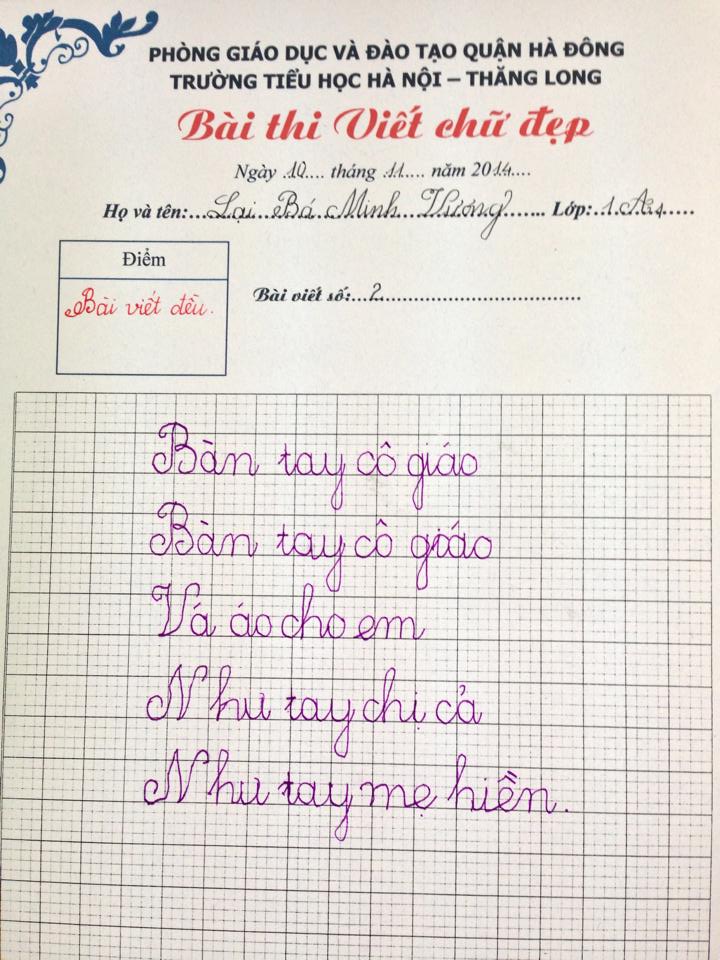 PHÒNG GIÁO DỤC VÀ ĐÀO TẠO QUẬN HÀ ĐÔNG
TRƯỜNG TIỂU HỌC HÀ NỘI – THĂNG LONG
Bài thi Viết chữ đẹp
Ngày 10.... tháng 11.... năm 2014....
Họ và tên:...Lại Bá Minh Vương...... Lớp:..1A4.....
Điểm
Bài viết đều.
Bài viết số:...2...................................
Bàn tay cô giáo
Bàn tay cô giáo
Vá áo cho em
Như tay chị cả
Như tay mẹ hiền.